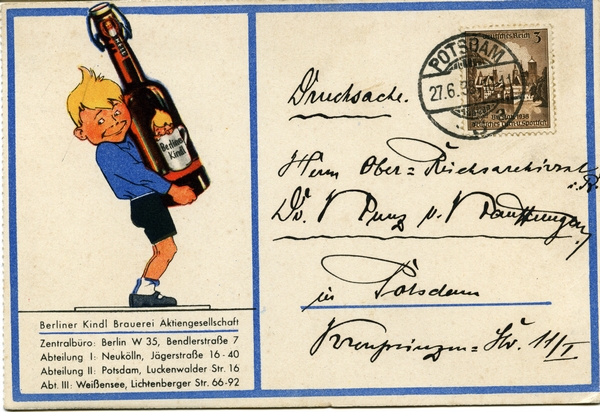 Berliner Kindl
Berliner Kindl Brauerei Aktiengesellschaft
Zentralbüro: Berlin W 35, Bendlerstraße 7
Abteilung I: Neukölln, Jägerstraße 16-40
Abteilung II: Potsdam, Luckenwalder Str. 16
Abt. III: Weißensee, Lichtenberger Str. 66-92
Deutsches Reich 3
POTSDAM
27.6.
Drucksache.
Herrn Ober=Reichsarchivrat
i. R.
Dr.
in Potsdam
Kronprinzen=Str. 11/I